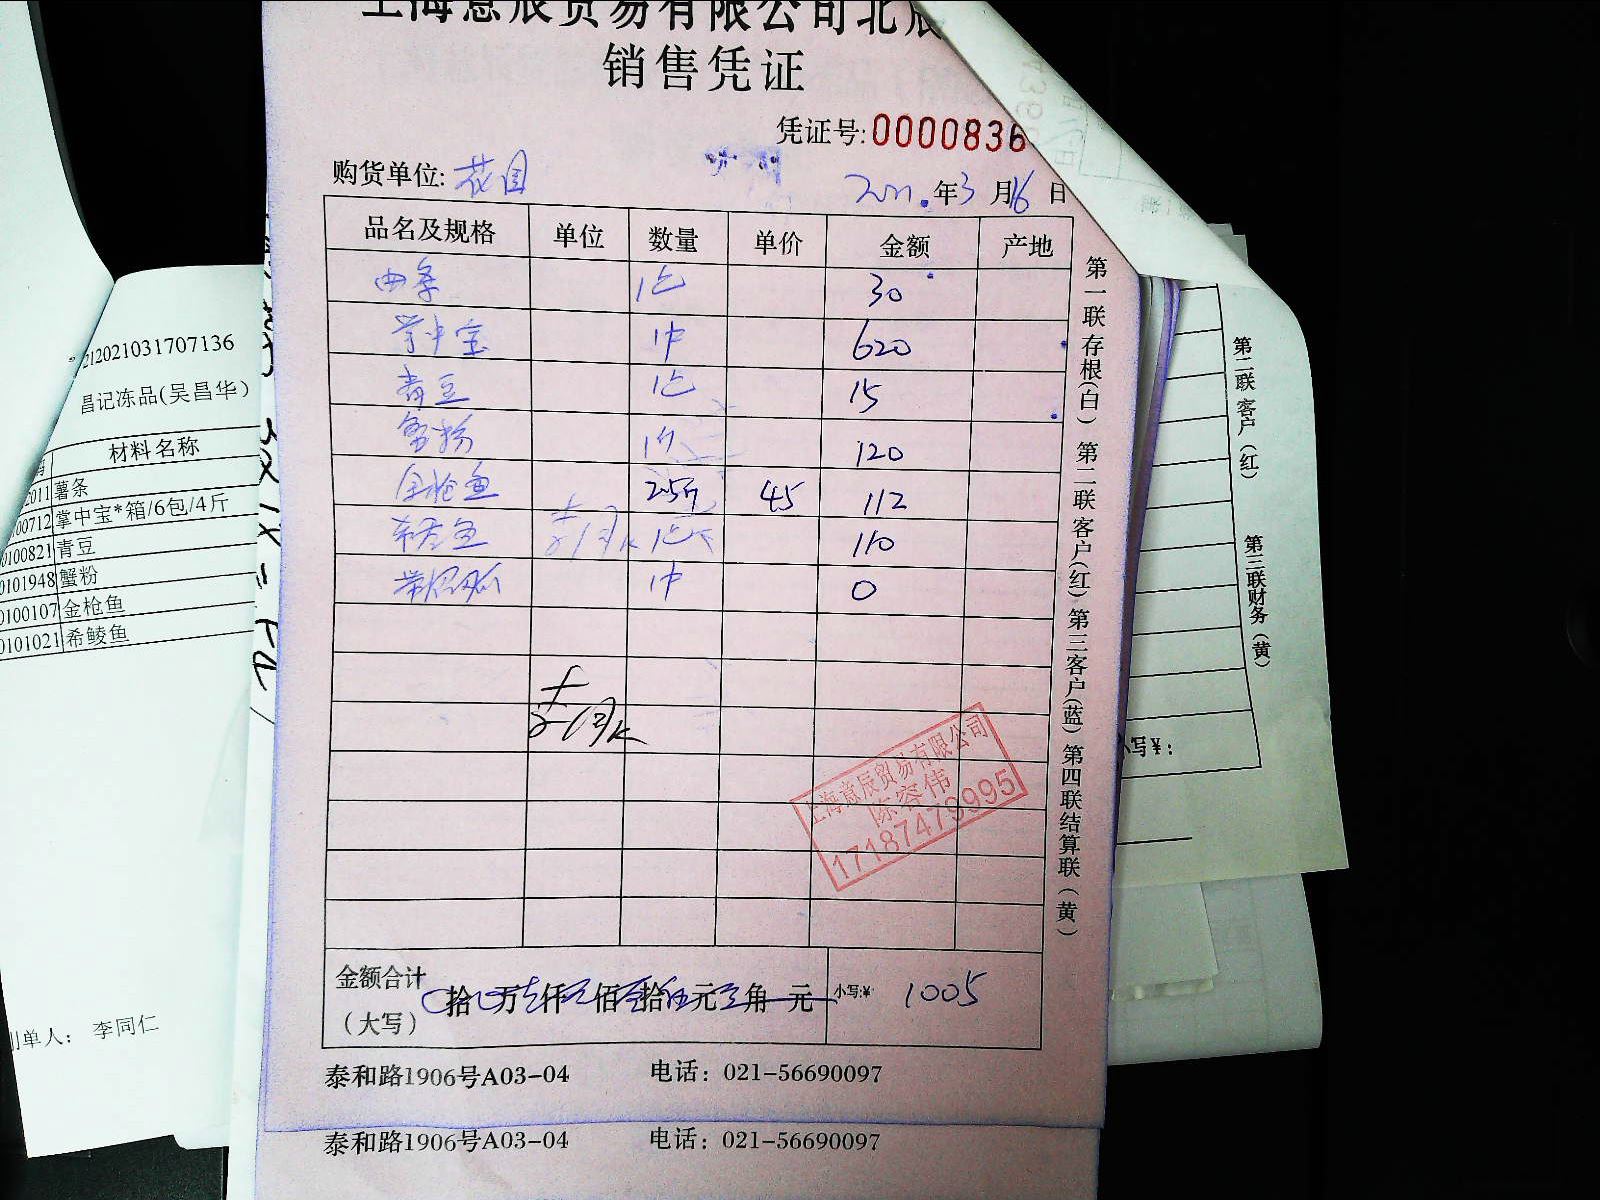 上海意辰贸易有限公司北辰
销售凭证
凭证号:0000836
购货单位: 花园
年3月16日
品名及规格 单位 数量 单价 金额 产地
曲条 1包 30
掌中宝 1件 620
青豆 1包 15
蟹粉 1 120
金枪鱼 2.5斤 45 112
希鲮鱼 1包 110
1件 0
上海意辰贸易有限公司
陈容伟
17187479995
金额合计
(大写)
拾 万 仟 佰 拾 元 角 元 小写:¥ 1005
泰和路1906号A03-04 电话: 021-56690097
泰和路1906号A03-04 电话: 021-56690097
第一联存根(白) 第二联客户(红) 第三客户(蓝) 第四联结算联(黄)
212021031707136
昌记冻品(吴昌华)
材料名称
2011 薯条
00712 掌中宝*箱/6包/4斤
0100821 青豆
0101948 蟹粉
0100107 金枪鱼
0101021 希鲮鱼
制单人: 李同仁
第二联客户(红)
第三联财务(黄)
小写¥: